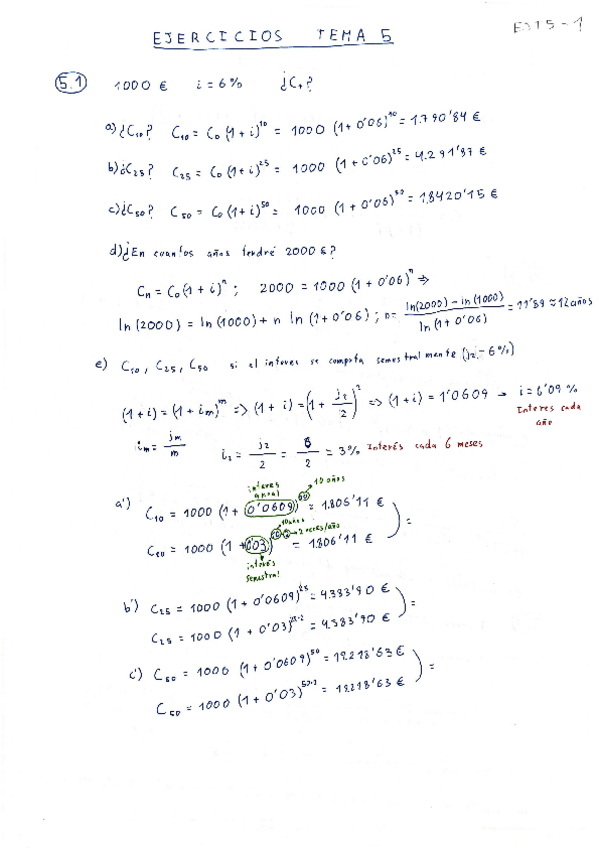 EJERCICIOS TEMA 5
EJT5-1
5.1 1000 € i = 6% ¿C₊?
a) ¿C₁₀? C₁₀ = C₀ (1+i)¹⁰ = 1000 (1+0'06)¹⁰ = 1.790'84 €
b) ¿C₂₅? C₂₅ = C₀ (1+i)²⁵ = 1000 (1+0'06)²⁵ = 4.291'87 €
c) ¿C₅₀? C₅₀ = C₀ (1+i)⁵⁰ = 1000 (1+0'06)⁵⁰ = 18420'15 €
d) ¿En cuantos años tendré 2000 €?
Cn = C₀ (1+i)ⁿ ; 2000 = 1000 (1+0'06)ⁿ ⇒
ln(2000) = ln(1000) + n ln(1+0'06) ; n = ln(2000) - ln(1000) / ln(1+0'06) = 11'89 ≈ 12 años
e) C₁₀, C₂₅, C₅₀ si el interes se computa semestralmente (j₂ = 6%)
(1+i) = (1+im)ᵐ => (1+i) = (1 + j₂/2)² => (1+i) = 1'0609 → i = 6'09 %
Interes cada año
im = jm/m i₂ = j₂/2 = 6/2 = 3% Interés cada 6 meses
interes anual 10 años
a') C₁₀ = 1000 (1 + 0'0609)¹⁰ = 1.806'11 €
10 años 2 veces/año
= 1000 (1 + 0'03) = 1.806'11 € ) =
interés semestral
b') C₂₅ = 1000 (1 + 0'0609)²⁵ = 4.383'90 €
C₂₅ = 1000 (1 + 0'03)²⁵·² = 4.383'90 € ) =
c') C₅₀ = 1000 (1 + 0'0609)⁵⁰ = 19.218'63 €
C₅₀ = 1000 (1 + 0'03)⁵⁰·² = 19.218'63 € ) =